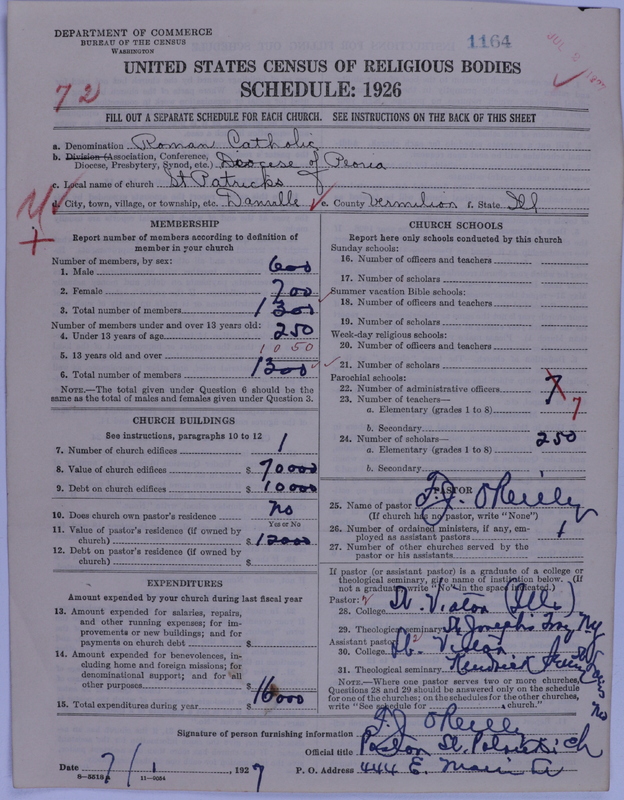 DEPARTMENT OF COMMERCE
BUREAU OF THE CENSUS
WASHINGTON
1164
UNITED STATES CENSUS OF RELIGIOUS BODIES
SCHEDULE: 1926
72
FILL OUT A SEPARATE SCHEDULE FOR EACH CHURCH. SEE INSTRUCTIONS ON THE BACK OF THIS SHEET
a. Denomination Roman Catholic
b. Division (Association, Conference, Diocese, Presbytery, Synod, etc.) Diocese of Peoria
c. Local name of church St Patricks
d. City, town, village, or township, etc. Danville e. County Vermilion f. State Ill
MEMBERSHIP
Report number of members according to definition of
member in your church
Number of members, by sex:
1. Male 600
2. Female 700
3. Total number of members 1300
Number of members under and over 13 years old:
4. Under 13 years of age 250
5. 13 years old and over 1050
6. Total number of members 1300
NOTE.—The total given under Question 6 should be the
same as the total of males and females given under Question 3.
CHURCH BUILDINGS
See instructions, paragraphs 10 to 12
7. Number of church edifices 1
8. Value of church edifices $ 70000
9. Debt on church edifices $ 10000
10. Does church own pastor's residence no
Yes or No
11. Value of pastor's residence (if owned by
church) $ 12000
12. Debt on pastor's residence (if owned by
church) $
EXPENDITURES
Amount expended by your church during last fiscal year
13. Amount expended for salaries, repairs,
and other running expenses; for im-
provements or new buildings; and for
payments on church debt $
14. Amount expended for benevolences, in-
cluding home and foreign missions; for
denominational support; and for all
other purposes $
15. Total expenditures during year $ 16000
CHURCH SCHOOLS
Report here only schools conducted by this church
Sunday schools:
16. Number of officers and teachers
17. Number of scholars
Summer vacation Bible schools:
18. Number of officers and teachers
19. Number of scholars
Week-day religious schools:
20. Number of officers and teachers
21. Number of scholars
Parochial schools:
22. Number of administrative officers 7
23. Number of teachers—
a. Elementary (grades 1 to 8) 7
b. Secondary
24. Number of scholars— 250
a. Elementary (grades 1 to 8)
b. Secondary
PASTOR
25. Name of pastor F.J. O'Reilly
(If church has no pastor, write "None")
26. Number of ordained ministers, if any, em-
ployed as assistant pastors 1
27. Number of other churches served by the
pastor or his assistants
If pastor (or assistant pastor) is a graduate of a college or
theological seminary, give name of institution below. (If
not a graduate write "No" in the space indicated.)
Pastor:
28. College St. Viator (Ills)
29. Theological seminary St Josephs Troy NY
Assistant pastor:
30. College St. Viator
31. Theological seminary Kendrick
NOTE.—Where one pastor serves two or more churches,
Questions 28 and 29 should be answered only on the schedule
for one of the churches; on the schedules for the other churches,
write "See schedule for church."
Signature of person furnishing information F.J. O'Reilly
Official title Pastor St. Patricks ch
Date 7/1, 1927 P. O. Address 444 E. Main St
8—5518 11—9064